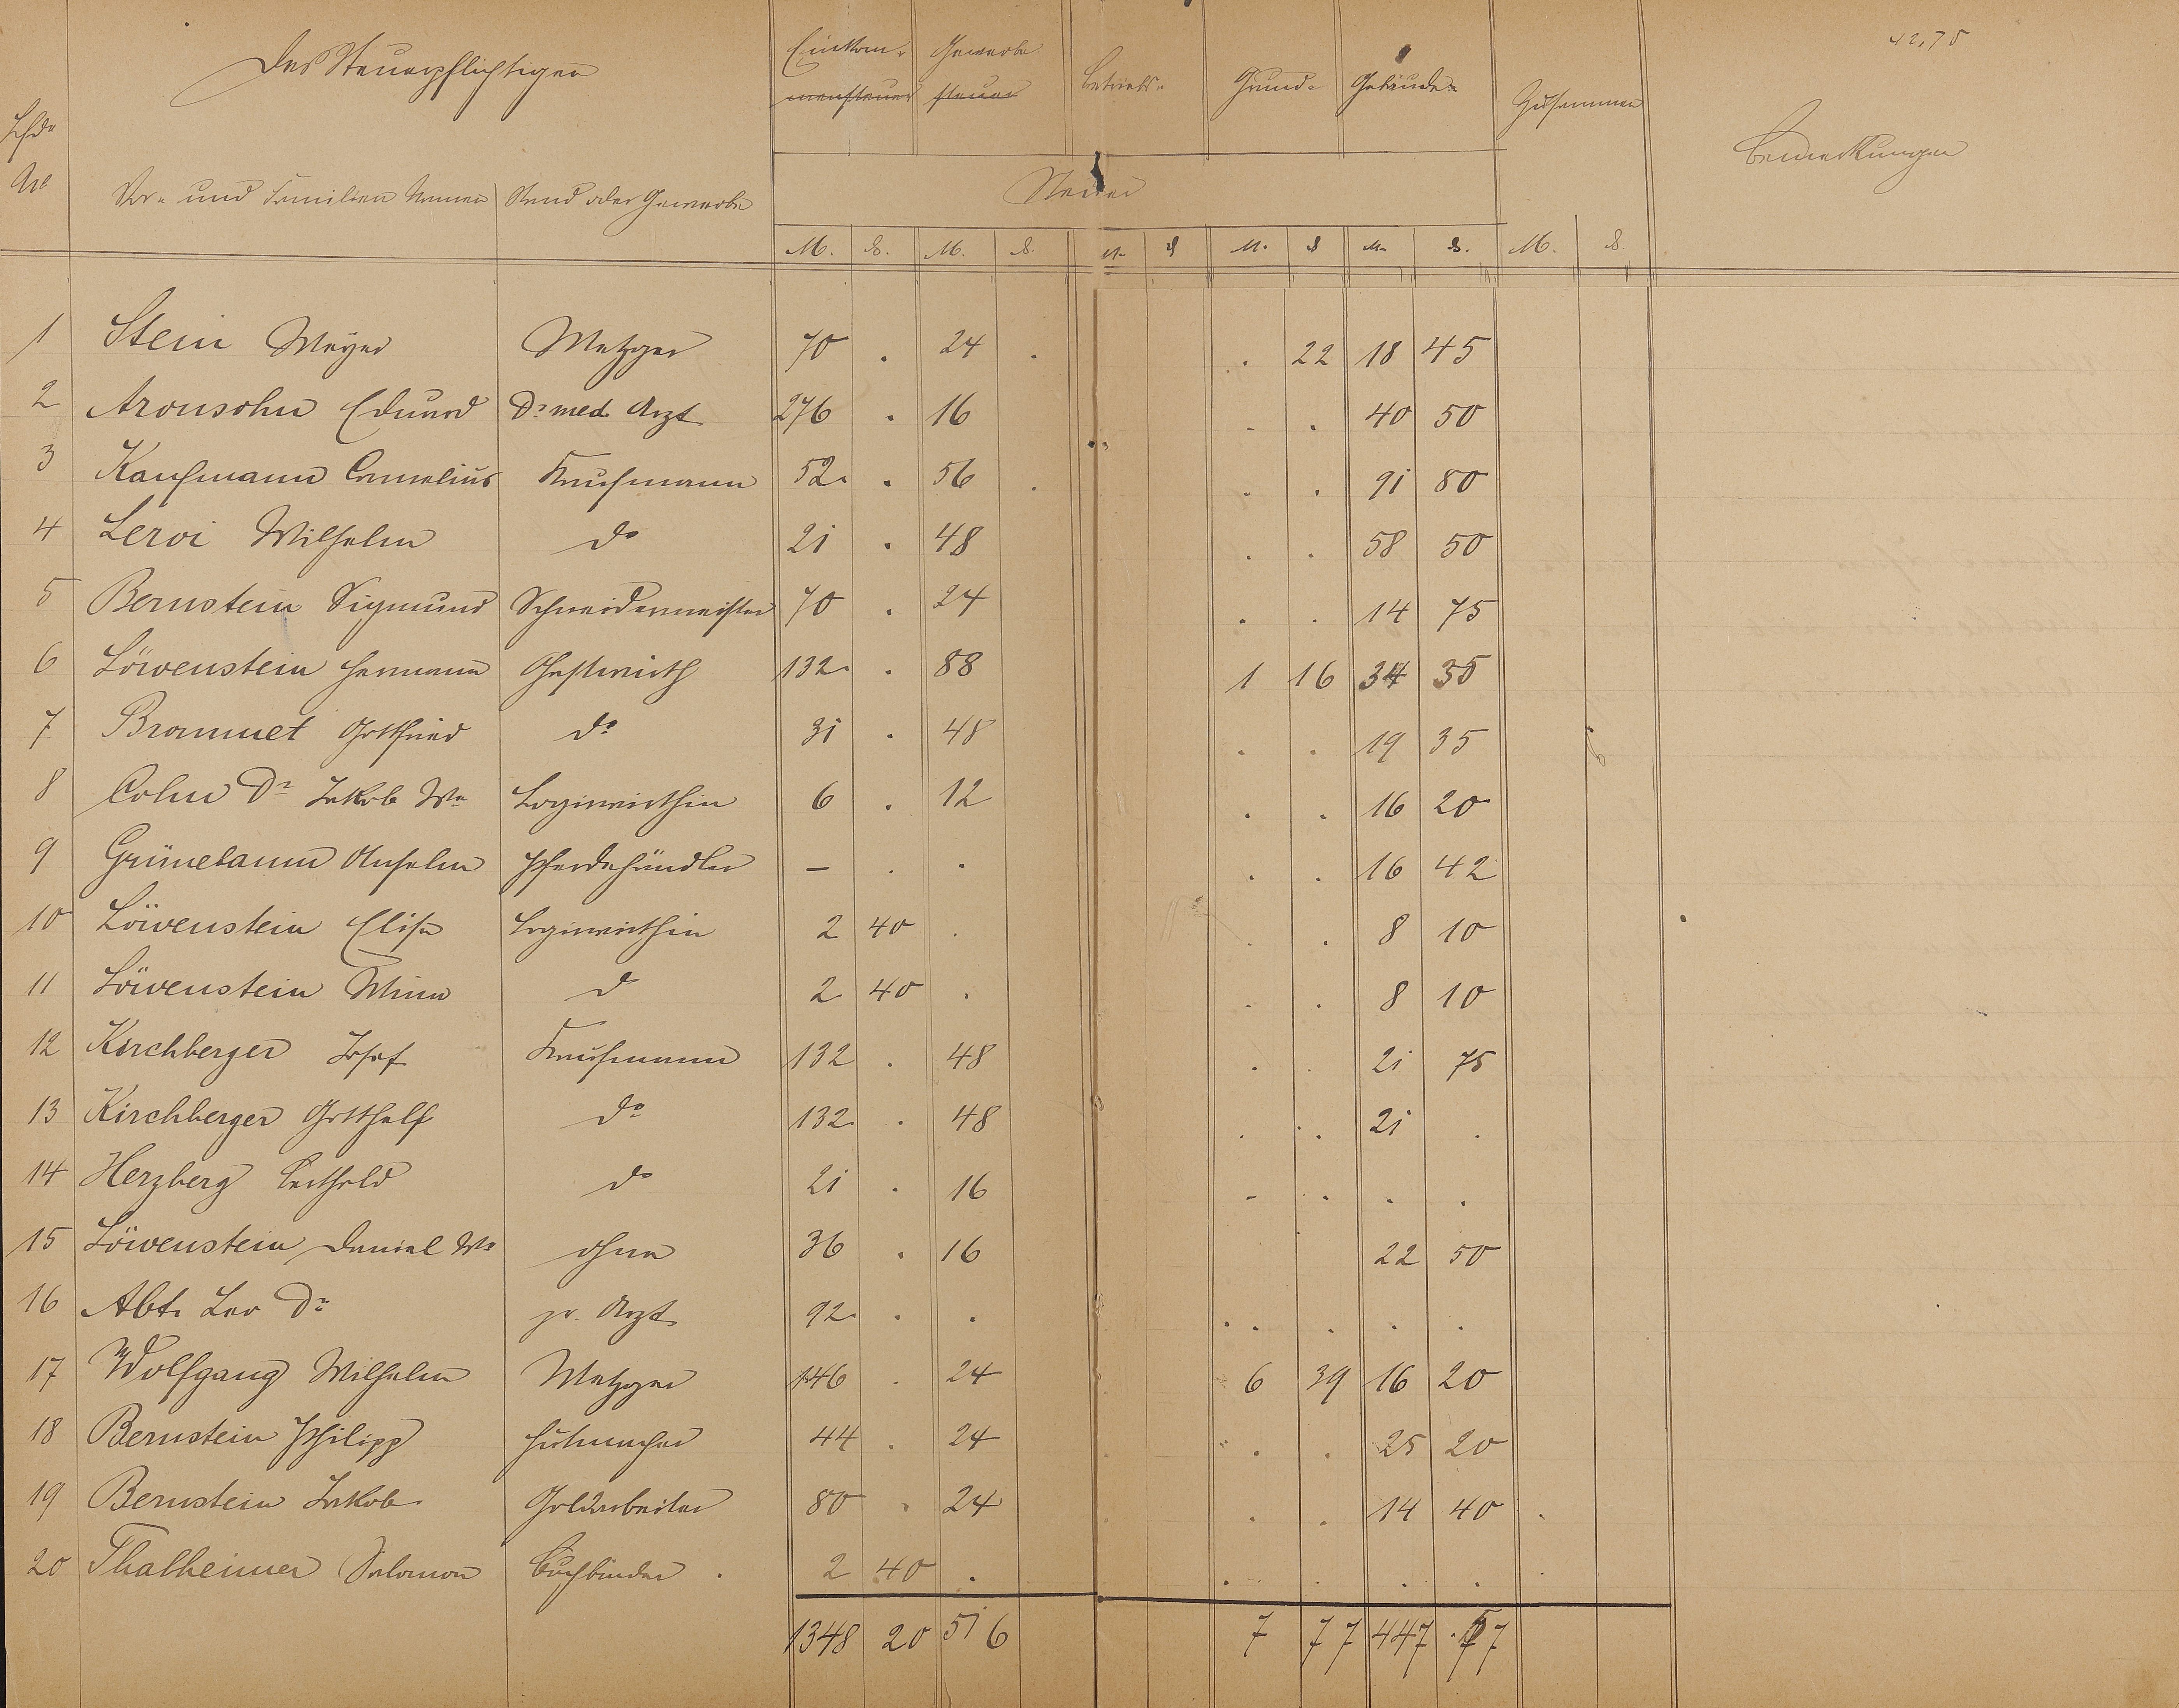 42,75
Des Steuerpflichtigen
Einkom- Gewerbe
mensteuer steuer
Betriebs- Grund- Gebäude-
Zusammen
Bemerkungen
Lfde
No
Vor- und Familien Namen Stand oder Gewerbe
Steuer
M. ₰. M. ₰. M. ₰ M. ₰ M. ₰. M. ₰.
1 Stein Meyer Metzger 70 . 24 . . 22 18 45
2 Aronsohn Eduard Dr med. Arzt 276 . 16 . . 40 50
3 Kaufmann Cornelius Kaufmann 52. . 56 . . . 91 80
4 Leroi Wilhelm do 21 . 48 . . 58 50
5 Bernstein Sigmund Schneidermeister 70 . 24 . . 14 75
6 Löwenstein Hermann Gastwirth 132. . 88 1 16 34 35
7 Brommet Gottfried do 31 . 48 . . 19 35
8 Cohn Dr Jakob We Logirwirthin 6 . 12 . . 16 20
9 Grünebaum Anselm Pferdehändler – . . . . 16 42
10 Löwenstein Elise Logirwirthin 2 40 . . . 8 10
11 Löwenstein Mina do 2 40 . . . 8 10
12 Kirchberger Josef Kaufmann 132 . 48 . . 21 75
13 Kirchberger Gotthelf do 132. . 48 . . 21 .
14 Herzberg Berthold do 21 . 16 - . . .
15 Löwenstein Daniel We ohne 36 . 16 22 50
16 Abt. Leo Dr pr. Arzt 92. . . . . . . .
17 Wolfgang Wilhelm Metzger 146 . 24 6 39 16 20
18 Bernstein Philipp Hutmacher 44 . 24 . . 25 20
19 Bernstein Jakob Goldarbeiter 80 . 24 . . 14 40 .
20 Thalheimer Salomon Buchbinder . 2 40 . . . . .
1348 20 516 7 77 447 .57